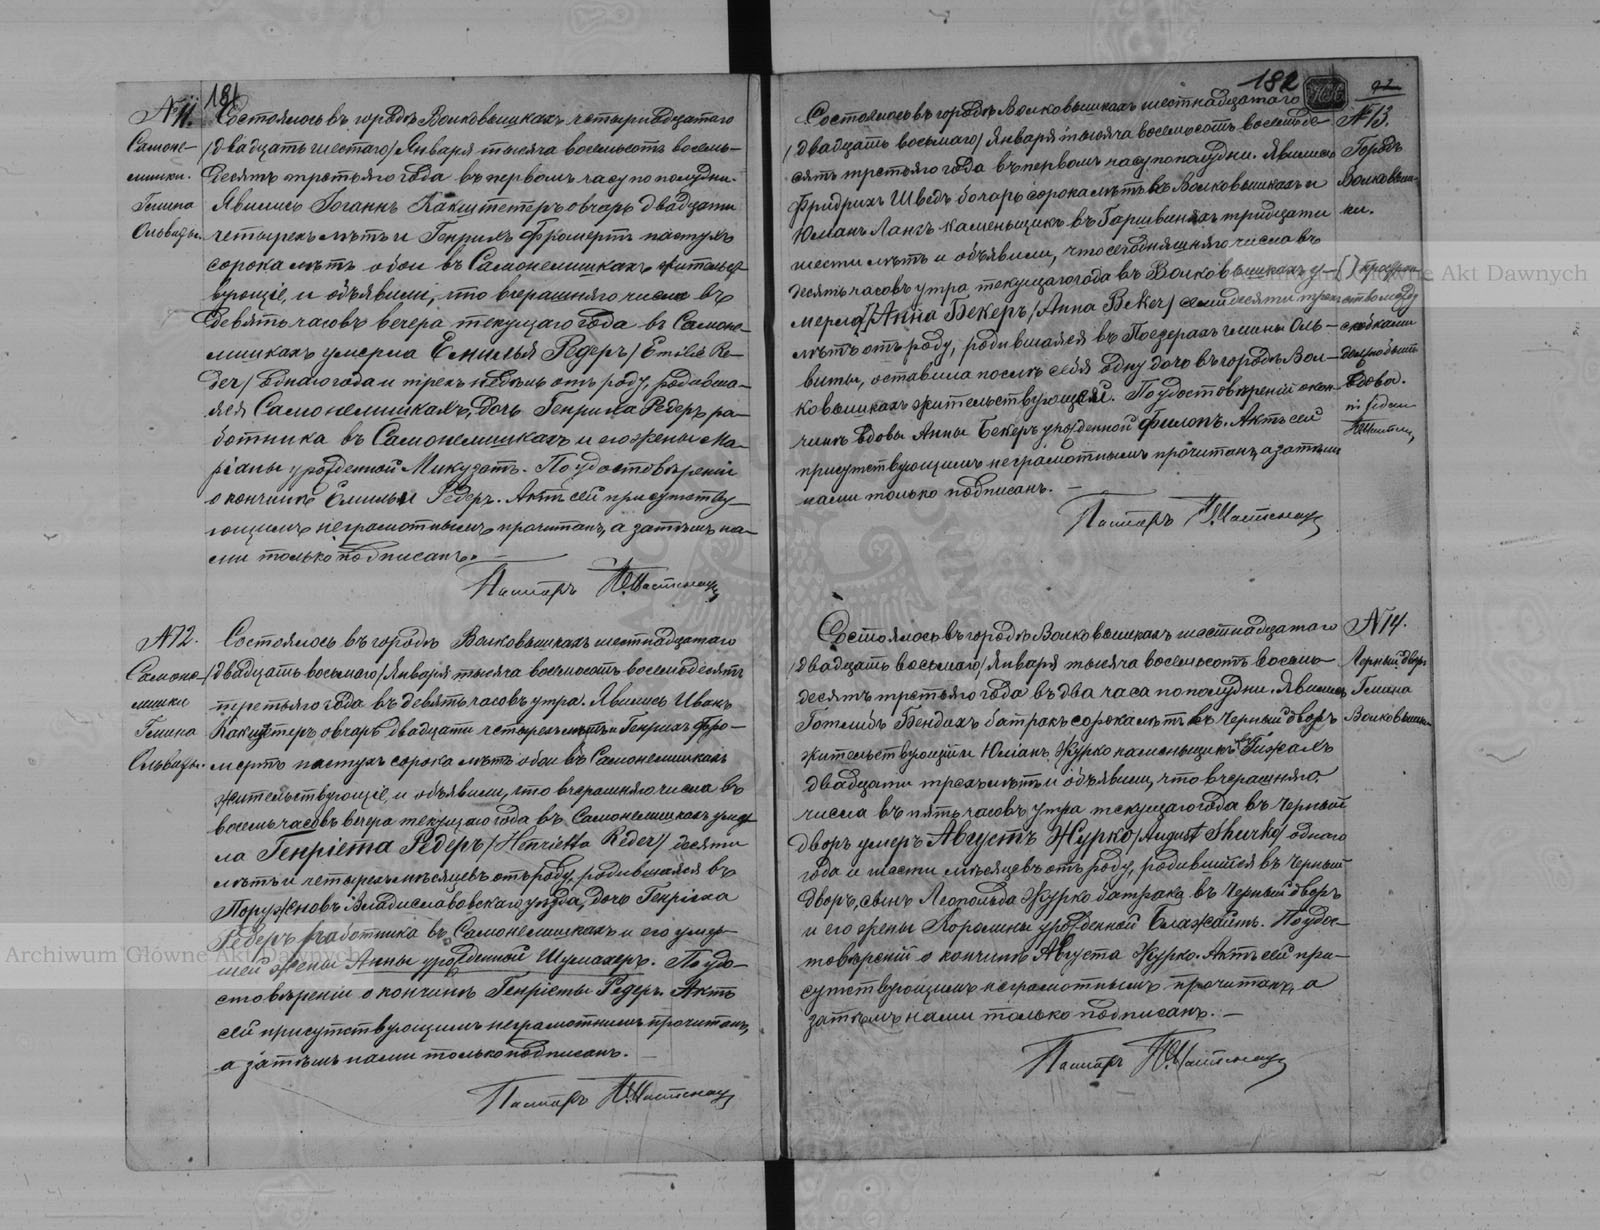 181
№ 11.
Самоне-
лишки.
Гмина
Ольвиты.
Состоялось въ городѣ Волковышкахъ четырнадцатаго
/двадцать шестаго/ Января тысяча восемьсотъ восемь-
десятъ третьяго года въ первомъ часу по полудни.
Явились Іоганнъ Какштетеръ овчаръ двадцати
четырехъ лѣтъ и Генрихъ Фромертъ пастухъ
сорока лѣтъ обои въ Самонелишкахъ жительст-
вующіе, и объявили, что вчерашняго числа въ
девять часовъ вечера текущаго года въ Самоне-
лишкахъ умерла Емилья Редеръ /Emilie Re-
der/ одного года и трехъ недѣль отъ роду, родивша-
яся Самонелишкахъ, дочь Генриха Редеръ ра-
ботника въ Самонелишкахъ и его жены Ма-
ріаны урожденной Микузатъ. По удостовѣреніи
о кончинѣ Емильи Редеръ. Актъ сей присутству-
ющимъ неграмотнымъ прочитанъ, а затѣмъ на-
ми только подписанъ. —
Пасторъ
№ 12.
Самоне-
лишки
Гмина
Ольвиты.
Состоялось въ городѣ Волковышкахъ шестнадцатаго
/двадцать восьмаго/ Января тысяча восемьсотъ восемьдесятъ
третьяго года въ девять часовъ утра. Явились Иванъ
Какштетеръ овчаръ двадцати четырехъ лѣтъ и Генрихъ Фро-
мертъ пастухъ сорока лѣтъ обои въ Самонелишкахъ
жительствующіе, и объявили, что вчерашняго числа въ
восемь часовъ вечера текущаго года въ Самонелишкахъ умер-
ла Генріета Редеръ /Henrietta Reder/ десяти
лѣтъ и четырехъ мѣсяцевъ отъ роду, родившаяся въ
Владиславовскаго уѣзда, дочь Генриха
Редеръ работника въ Самонелишкахъ и его умер-
шей жены Анны урожденной Шумахеръ. По удо-
стовѣреніи о кончинѣ Генріеты Редеръ Актъ
сей присутствующимъ неграмотнымъ прочитанъ,
а затѣмъ нами только подписанъ. —
Пасторъ
182
92
№ 13.
Городъ
Волковыш-
ки.
Состоялось въ городѣ Волковышкахъ шестнадцатаго
/двадцать восьмаго/ Января тысяча восемьсотъ восемьде-
сятъ третьяго года въ первомъ часу по полудни. Явились
Фридрихъ Шведъ бочаръ сорока лѣтъ въ Волковышкахъ и
Юліанъ Лангъ каменьщикъ въ тридцати
шести лѣтъ и объявили, что сегодняшняго числа въ
десять часовъ утра текущаго года въ Волковышкахъ у-
мерла Анна Бекеръ /Anna Beker/ семидесяти трехъ
лѣтъ отъ роду, родившаяся въ Поезерахъ гмины Оль-
виты, оставила послѣ себя одну дочь въ городѣ Вол-
ковышкахъ жительствующей. По удостовѣреніи о кон-
чинѣ вдовы Анны Бекеръ урожденной Филонъ. Актъ сей
присутствующимъ неграмотнымъ прочитанъ, а затѣмъ
нами только подписанъ. —
скобками
должно быть
вдова.
Пасторъ
№ 14.
Черный дворъ
Гмина
Волковышки
Состоялось въ городѣ Волковышкахъ шестнадцатаго
/двадцать восьмаго/ Января тысяча восемьсотъ восемь-
десятъ третьяго года въ два часа по полудни. Явились
Готлибъ Бендихъ батракъ сорока лѣтъ въ Черный дворъ
жительствующій и Юліанъ Журко каменьщикъ въ Гижахъ
двадцати трехъ лѣтъ и объявили, что вчерашняго
числа въ пять часовъ утра текущаго года въ Черный
дворъ умеръ Августъ Журко /August Shurko/ одного
года и шести мѣсяцевъ отъ роду, родившійся въ Черный
дворъ, сынъ Леопольда Журко батрака въ Черный дворъ
и его жены Каролины урожденной Блажайтъ. По удос-
товѣреніи о кончинѣ Августа Журко. Актъ сей при-
сутствующимъ неграмотнымъ прочитанъ, а
затѣмъ нами только подписанъ. —
Пасторъ
Archiwum Główne Akt Dawnych
Archiwum Główne Akt Dawnych